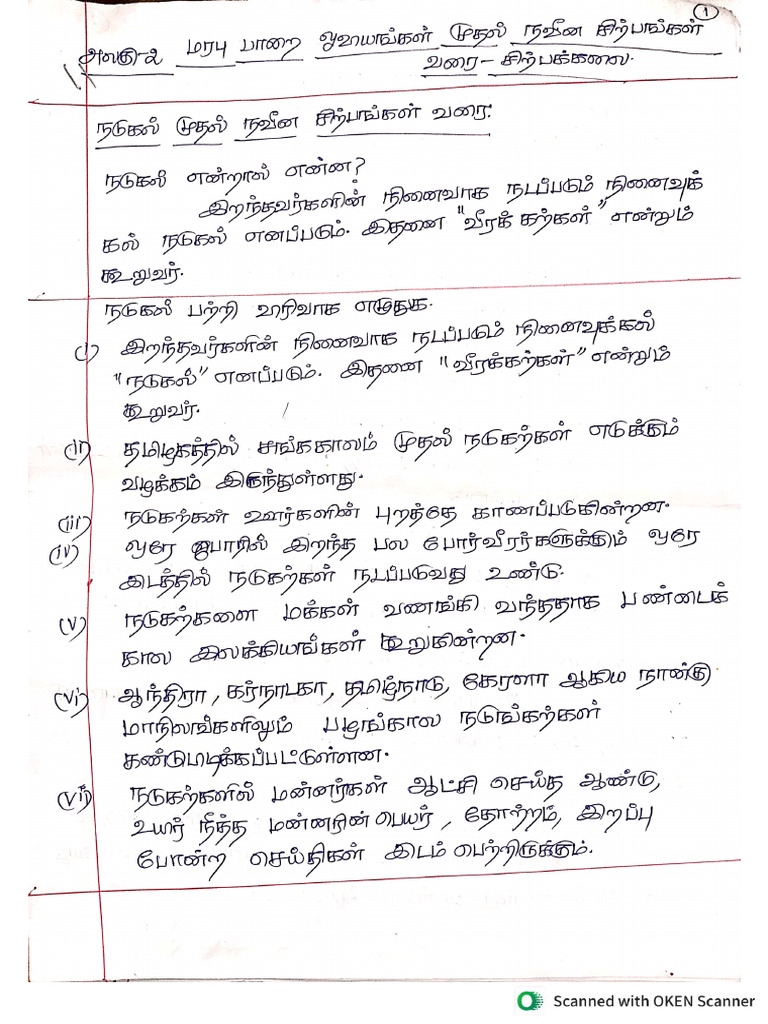 1
அலகு-2 மரபு பாறை ஓவியங்கள் முதல் நவீன சிற்பங்கள்
வரை - சிற்பக்கலை.
நடுகல் முதல் நவீன சிற்பங்கள் வரை.
நடுகல் என்றால் என்ன?
இறந்தவர்களின் நினைவாக நடப்படும் நினைவுக்
கல் நடுகல் எனப்படும். இதனை "வீரக் கற்கள்" என்றும்
கூறுவர்.
நடுகல் பற்றி விரிவாக எழுதுக.
i) இறந்தவர்களின் நினைவாக நடப்படும் நினைவுக்கல்
"நடுகல்" எனப்படும். இதனை "வீரக்கற்கள்" என்றும்
கூறுவர்.
(ii) தமிழகத்தில் சங்ககாலம் முதல் நடுகற்கள் எடுக்கும்
வழக்கம் இருந்துள்ளது.
(iii) நடுகற்கள் ஊர்களின் புறத்தே காணப்படுகின்றன.
(iv) ஒரே போரில் இறந்த பல போர்வீரர்களுக்கும் ஒரே
இடத்தில் நடுகற்கள் நடப்படுவது உண்டு.
(v) நடுகற்களை மக்கள் வணங்கி வந்ததாக பண்டைக்
கால இலக்கியங்கள் கூறுகின்றன.
(vi) ஆந்திரா, கர்நாடகா, தமிழ்நாடு, கேரளா ஆகிய நான்கு
மாநிலங்களிலும் பழங்கால நடுங்கற்கள்
கண்டுபடிக்கப்பட்டுள்ளன.
(vii) நடுகற்களில் மன்னர்கள் ஆட்சி செய்த ஆண்டு,
உயிர் நீத்த மன்னரின் பெயர், தோற்றம், இறப்பு
போன்ற செய்திகள் இடம் பெற்றிருக்கும்.
Scanned with OKEN Scanner